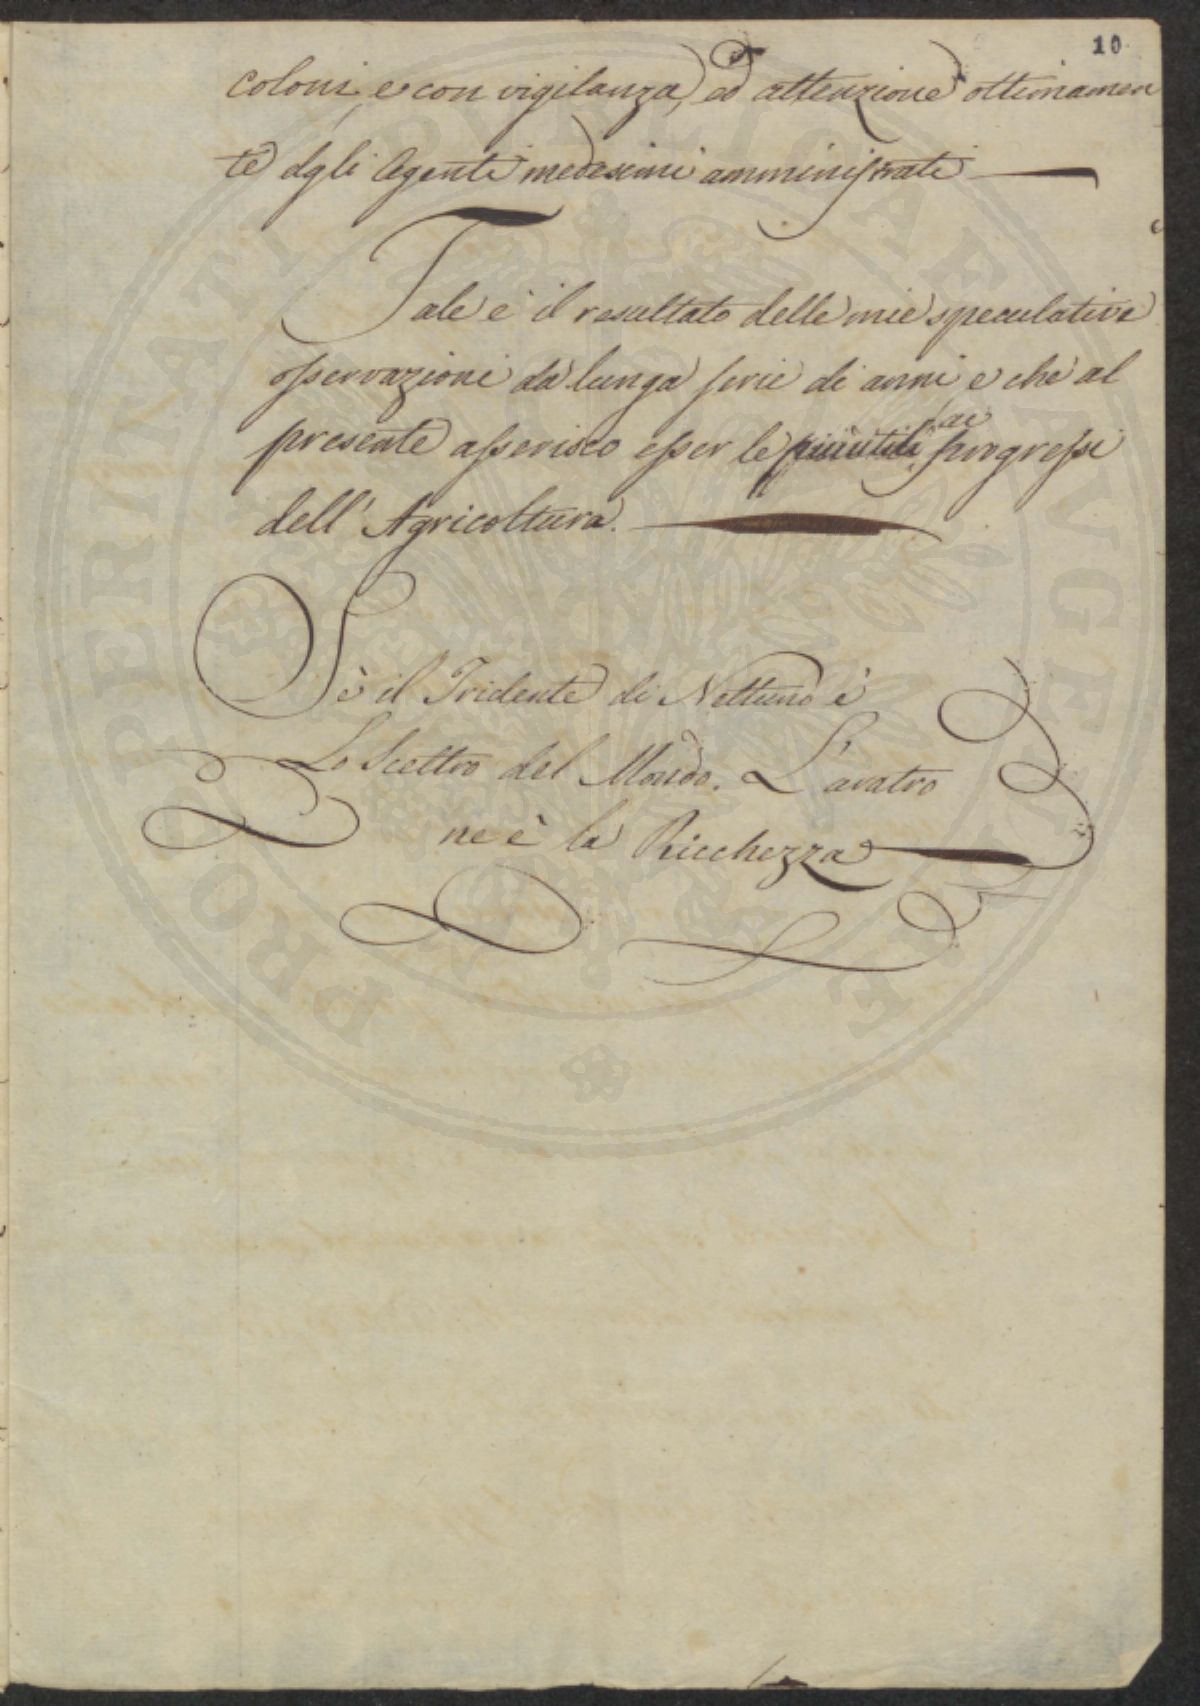 10
coloni, e con vigilanza, ed attenzione ottimamen
te dgli Agenti medesimi amministrati
Tale è il resultato delle mie speculative
osservazioni da lunga serie di anni e che al
presente asserisco esser le più utili ai progressi
dell' Agricoltura.
Sè il Tridente di Nettuno è
Lo Scettro del Mondo. L'aratro
ne è la Ricchezza
PERITIA
PUBLICAE AUGENDAE
PROSPERITATI